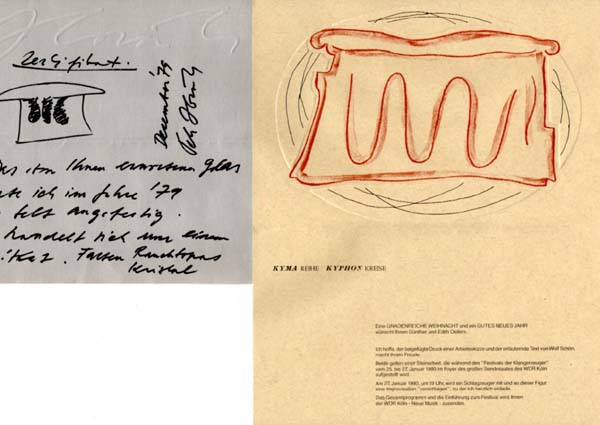 Zertifikat.
Dezember '79
von Ihnen erworbene Glas
ich im Jahre '79
selbst angefertigt.
handelt sich um einen
Farben Rauchtopas
Kristal
KYMA REIHE KYPHON KREISE
Eine GNADENREICHE WEIHNACHT und ein GUTES NEUES JAHR
wünscht Ihnen Günther und Edith Oellers.
Ich hoffe, der beigefügte Druck einer Arbeitsskizze und der erläuternde Text von Wolf Schön,
macht Ihnen Freude.
Beide gelten einer Steinarbeit, die während des "Festivals der Klangerzeuger"
vom 25. bis 27. Januar 1980 im Foyer des großen Sendesaales des WDR Köln
aufgestellt wird.
Am 27. Januar 1980, um 19 Uhr, wird ein Schlagzeuger mit und an dieser Figur
eine Improvisation "vorschlagen", zu der ich herzlich einlade.
Das Gesamtprogramm und die Einführung zum Festival wird Ihnen
der WDR Köln - Neue Musik - zusenden.